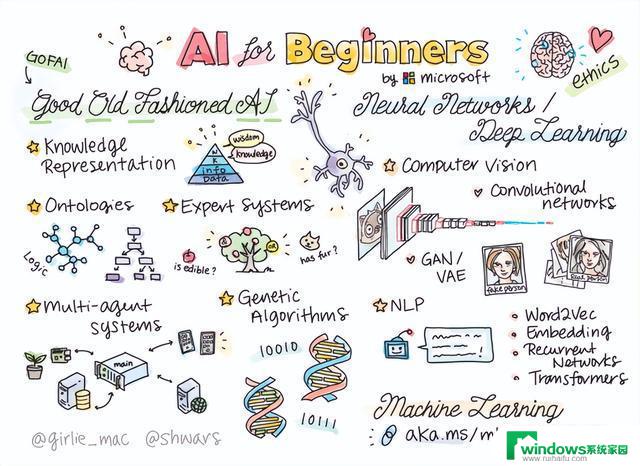 AI for Beginners
by Microsoft
GOFAI
ethics
Good Old Fashioned AI
Knowledge
Representation
wisdom
knowledge
W
K
info
Data
Ontologies
Logic
Expert Systems
is edible?
OR
has fur?
Multi-agent
systems
main
Genetic
Algorithms
10010
10111
Neural Networks /
Deep Learning
Computer Vision
Convolutional
networks
GAN/
VAE
fake person
real person
NLP
Word2Vec
Embedding
Recurrent
Networks
Transformers
Machine Learning
aka.ms/m
@girlie_mac @shwars
windows系统家园
www.ruihaifu.com